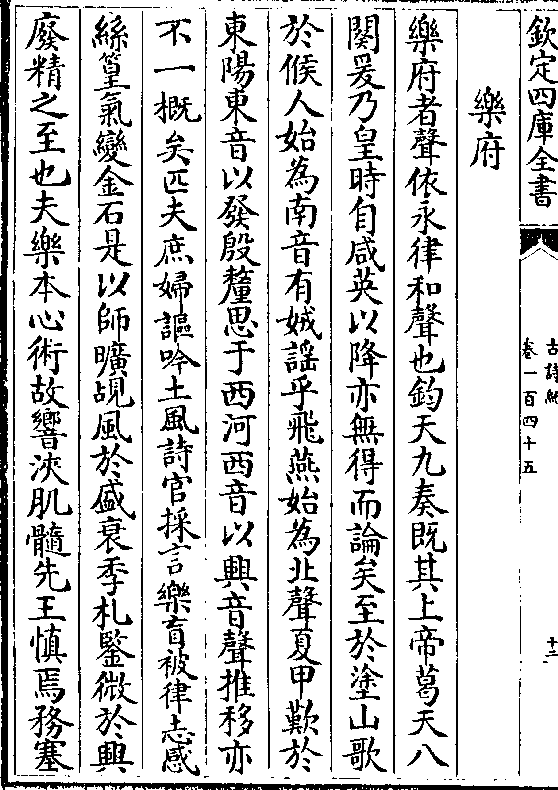 欽定四庫全書
古詩紀
卷一百四十五
十三
樂府
樂府者聲依永律和聲也鈞天九奏既其上帝葛天八
闋爰乃皇時自咸英以降亦無得而論矣至於塗山歌
於候人始為南音有娀謡乎飛燕始為北聲夏甲歎於
東陽東音以發殷釐思于西河西音以興音聲推移亦
不一概矣匹夫庶婦謳吟土風詩官採言樂育被律志感
絲篁氣變金石是以師曠覘風於盛衰季札鍳微於興
廢精之至也夫樂本心術故響浹肌髓先王慎焉務塞